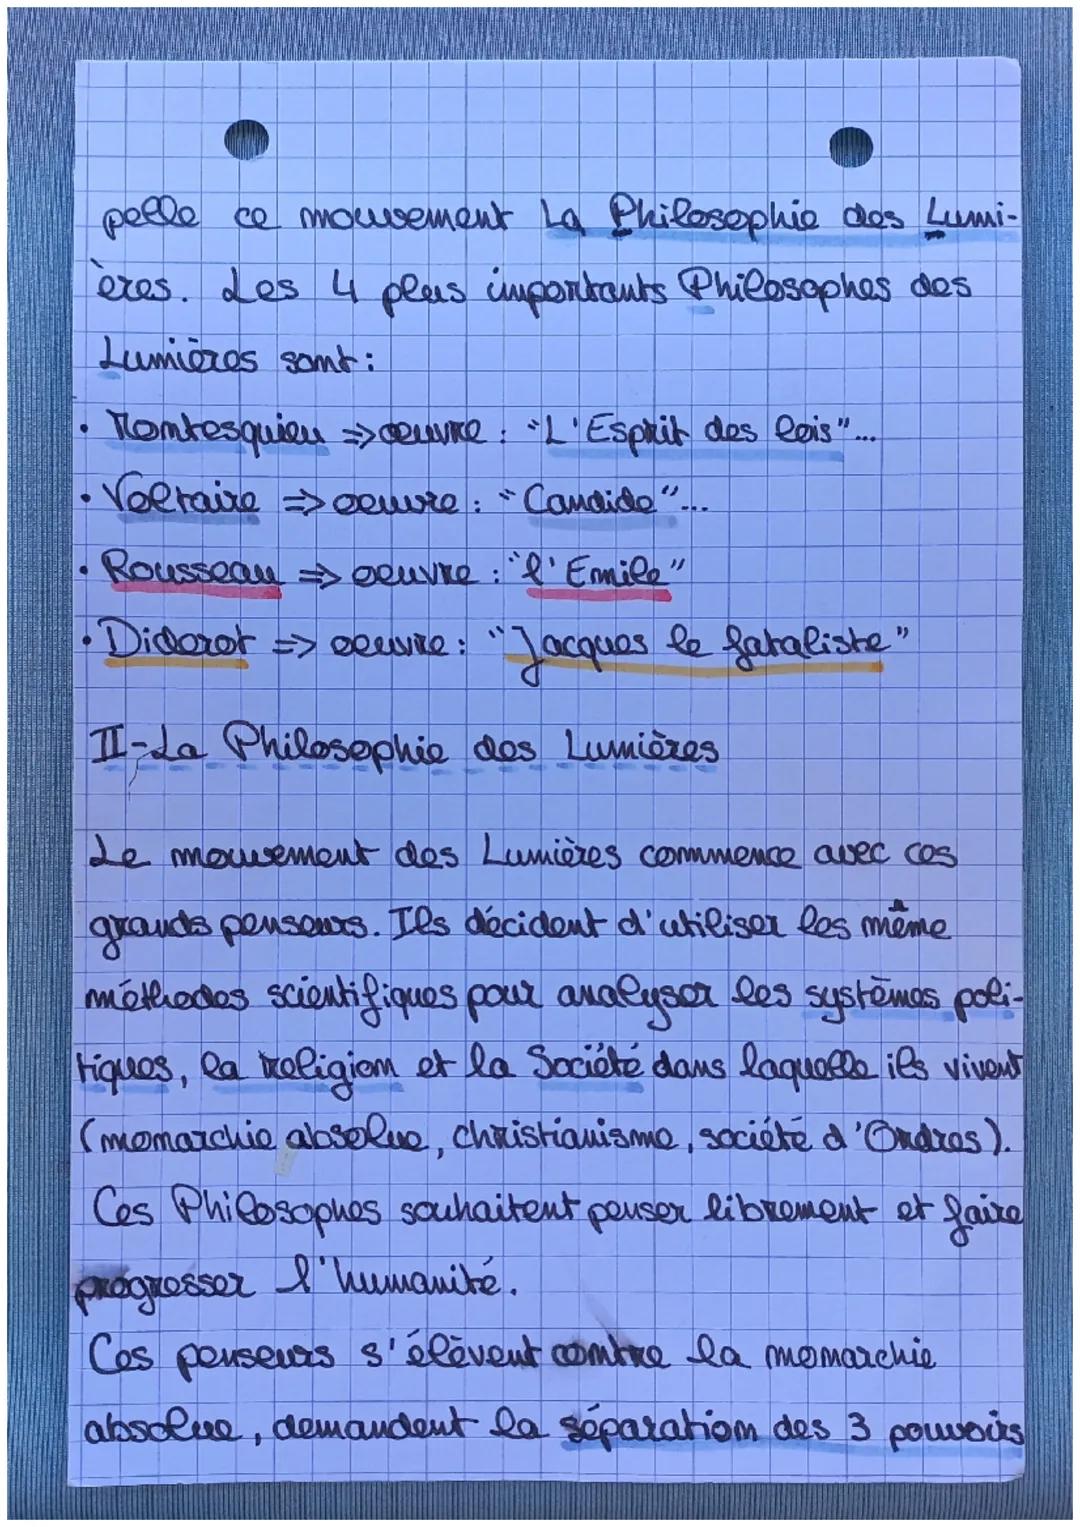 pelle ce mouvement La Philosophie des Lumi-
ères. Les 4 plus importants Philosophes des
Lumières sont :
• Montesquieu => oeuvre : "L'Esprit des lois"...
• Voltaire => oeuvre : "Candide"...
• Rousseau => oeuvre : "l'Emile"
• Diderot => oeuvre : "Jacques le fataliste"
II-La Philosophie des Lumières
Le mouvement des Lumières commence avec ces
grands penseurs. Ils décident d'utiliser les même
méthodes scientifiques pour analyser les systèmes poli-
tiques, la religion et la Société dans laquelle ils vivent
(monarchie absolue, christianisme, société d'Ordres).
Ces Philosophes souhaitent penser librement et faire
progresser l'humanité.
Ces penseurs s'élèvent contre la monarchie
absolue, demandent la séparation des 3 pouvoirs